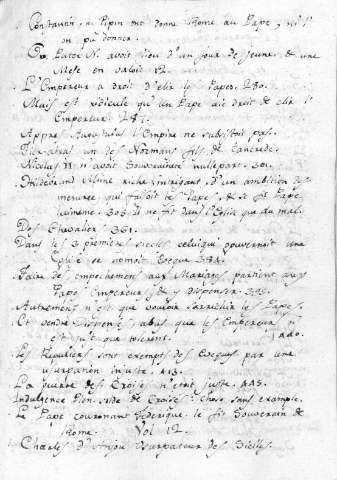 Constantin, ni Pipin ont donné Rome au Pape, ni l'
on pû donner.
Un Pater N. avoit lieu d'un jour de jeune, & une
Mese en valoit 12.
L'Empereur a droit d'elir les Papes. 280.
Mais est ridicule qu'un Pape aie droit de elir l'
Empereur. 287.
Appres Augustulus l'Empire ne subsistoit pas.
un des Normans fils de Tancrede.
Nicolas II n'avoit Souveraineté nullepart. 301.
Hildebrand Moine riche, intrigant, d'un ambition des
mesurée, qui faisoit les Papes, & se fit Pape
lui meme. 303. il ne fit dans l'Eglise que du mal.
Des Chevaliers 361.
Dans les 3 premiers siecles celui qui gouvernoit une
Eglise se nomoit Eveque 384.
Faire de empechement aux Mariages partient aux
Empereurs, & y dispenser. 395.
Autrement n'est que vouloir s'arrichir les Papes.
Et vendre dispense, abus que les Empereurs n'
ont que tolerent. 400.
Les Reguliers sont exempts des Eveques par une
usurpation injuste. 413.
La guerre des Croisés n'etoit juste. 425.
Indulgence Plen. aide de Croise. chose sans example.
Le Pape couronant Federique le fit Souverain de
Rome. Vol 12.
Charles d'Anjou Usurpateur des Sicilles.